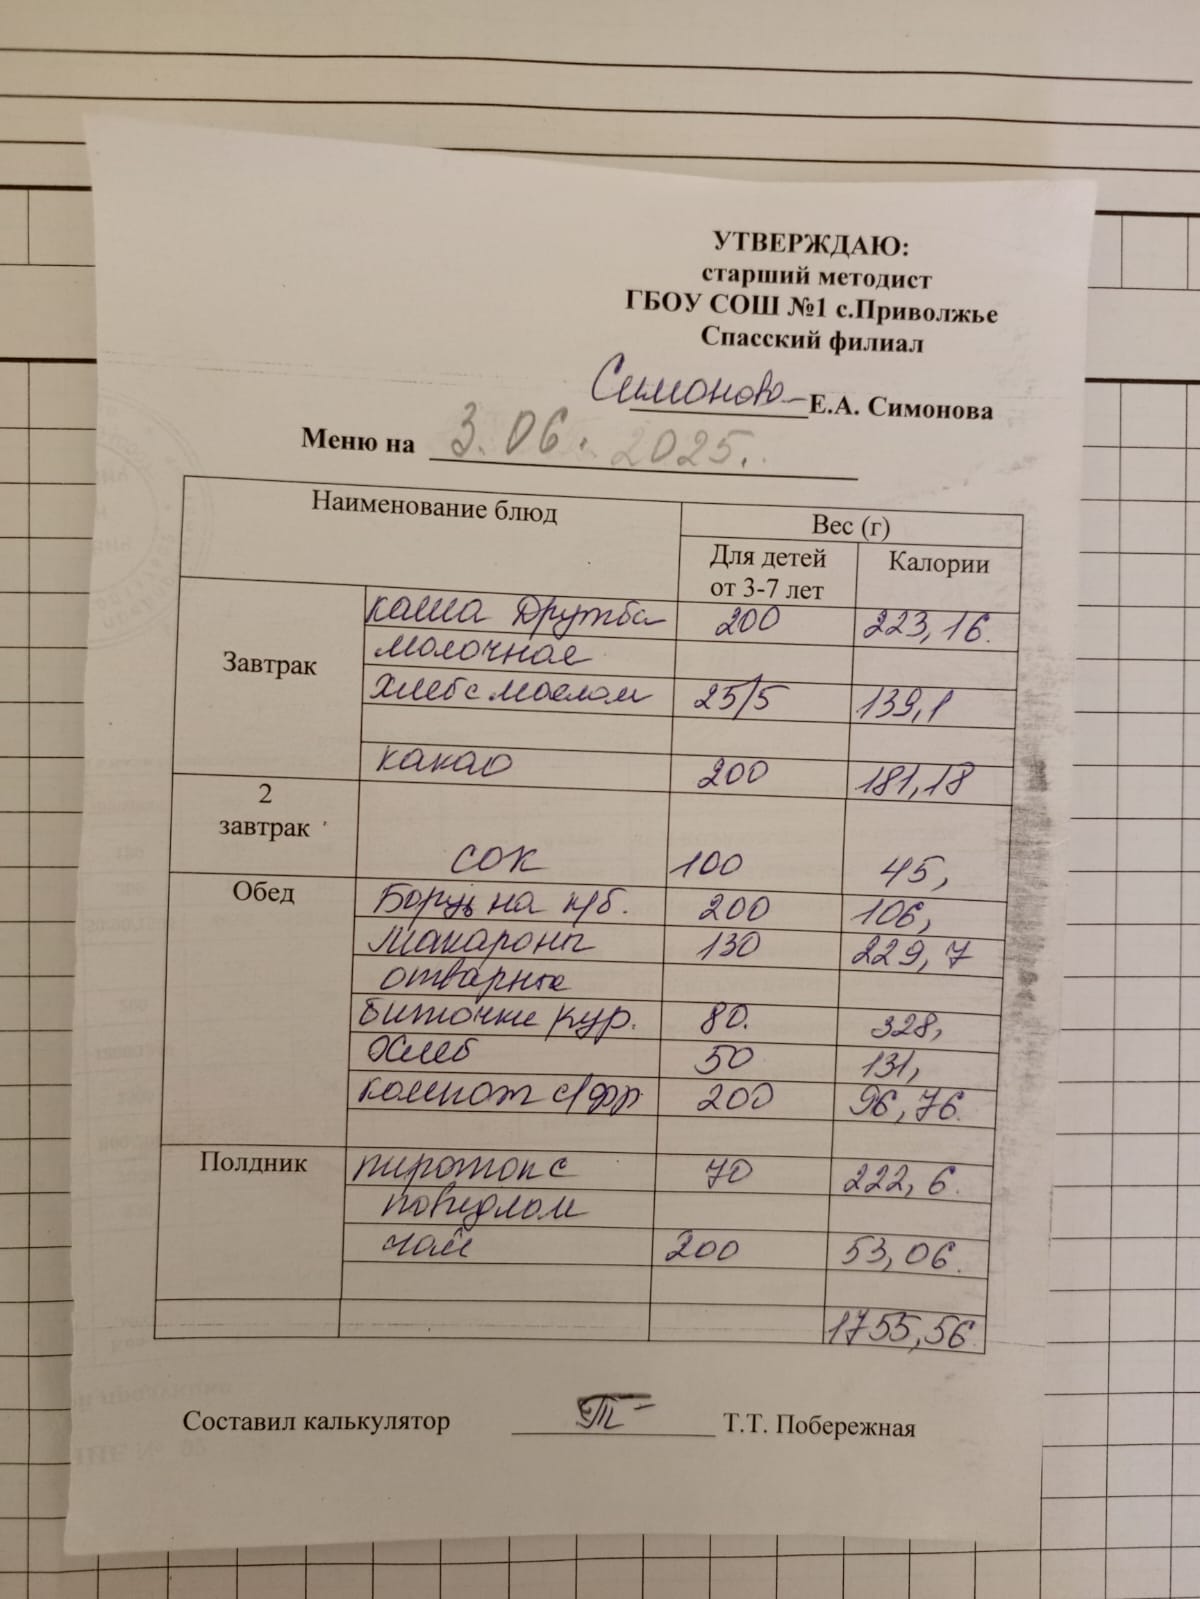 УТВЕРЖДАЮ:
старший методист
ГБОУ СОШ №1 с.Приволжье
Спасский филиал
Симонова Е.А. Симонова
Меню на 3.06.2025.
Наименование блюд Вес (г)
Для детей от 3-7 лет Калории
Завтрак
каша Дружба 200 223,16.
молочная
Хлеб с маслом 25/5 139,1
какао 200 181,18
2 завтрак
сок 100 45,
Обед
Борщ на к/б. 200 106,
Макароны 130 229,7
отварные
биточки кур. 80. 328,
Хлеб 50 131,
компот с/фр 200 96,76.
Полдник
пирожок с 70 222,6.
повидлом
чай 200 53,06.
1755,56.
Составил калькулятор Т.Т. Побережная